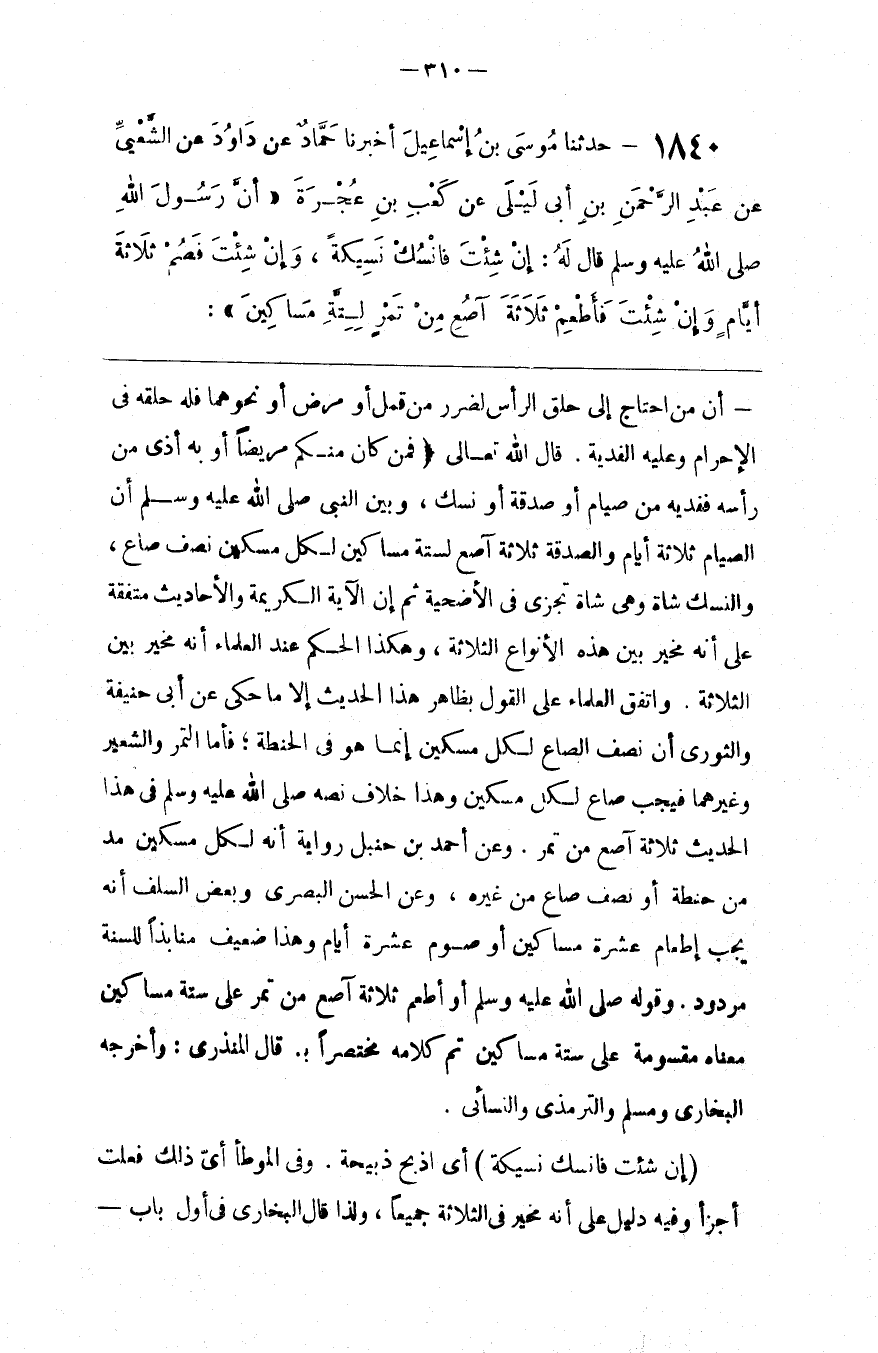 — ٣١٠ —
١٨٤٠ — حدثنا مُوسَى بنُ إسْماعِيلَ أخبرنا حَمَّادٌ عن دَاوُدَ عن الشَّعْبِيِّ
عن عَبْدِ الرَّحْمَنِ بنِ أبى لَيْـلَى عن كَعْبِ بنِ عُجْـرَةَ « أنَّ رَسُـولَ اللهِ
صلى اللهُ عليه وسلم قال لَهُ : إنْ شِئْتَ فانْسُكْ نَسِيكةً ، وَإنْ شِئْتَ فَصُمْ ثَلَاثةَ
أيَّامٍ وَإنْ شِئْتَ فَأَطْعِمْ ثَلَاثَةَ آصُعٍ مِنْ تَمْرٍ لِسِتَّةِ مَساكِينَ » :
— أن من احتاج إلى حلق الرأس لضرر من قمل أو مرض أو نحوهما فله حلقه فى
الإحرام وعليه الفدية . قال الله تعـالى ﴿ فمن كان منـكم مريضاً أو به أذى من
رأسه ففديه من صيام أو صدقة أو نسك ، وبين النبى صلى الله عليه وسـلم أن
الصيام ثلاثة أيام والصدقة ثلاثة آصع لستة مساكين لـكل مسكين نصف صاع ،
والنسك شاة وهى شاة تجزى فى الأضحية ثم إن الآية الـكريمة والأحاديث متفقة
على أنه مخير بين هذه الأنواع الثلاثة ، وهكذا الحـكم عند العلماء أنه مخير بين
الثلاثة . واتفق العلماء على القول بظاهر هذا الحديث إلا ما حكى عن أبى حنيفة
والثورى أن نصف الصاع لـكل مسكين إنمـا هو فى الحنطة ؛ فأما التمر والشعير
وغيرهما فيجب صاع لـكل مسكين وهذا خلاف نصه صلى الله عليه وسلم فى هذا
الحديث ثلاثة آصع من تمر . وعن أحمد بن حنبل رواية أنه لـكل مسكين مد
من حنطة أو نصف صاع من غيره ، وعن الحسن البصرى وبعض السلف أنه
يجب إطعام عشرة مساكين أو صـوم عشرة أيام وهذا ضعيف منابذاً للسنة
مردود . وقوله صلى الله عليه وسلم أو أطعم ثلاثة آصع من تمر على ستة مساكين
معناه مقسومة على ستة مساكين تم كلامه مختصراً . قال المنذرى : وأخرجه
البخارى ومسلم والترمذى والنسائى .
(إن شئت فانسك نسيكة ) أى اذبح ذبيحة . وفى الموطأ أىّ ذلك فعلت
أجزأ وفيه دليل على أنه مخير فى الثلاثة جميعاً ، ولذا قال البخارى فى أول باب —